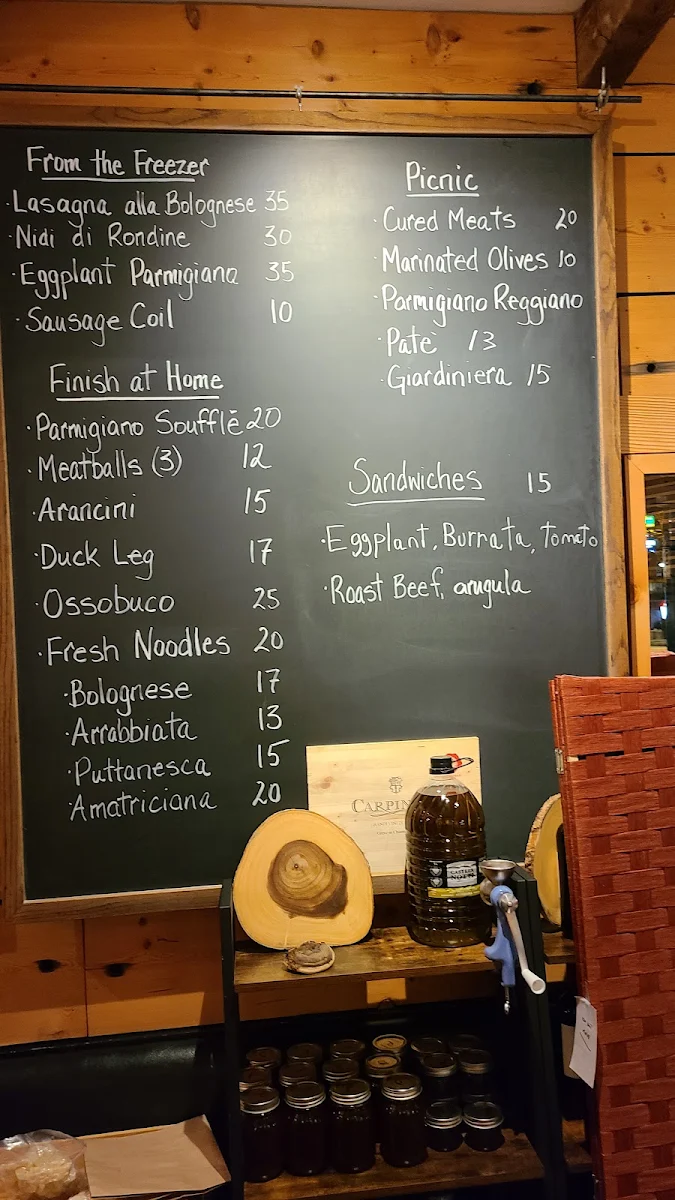 From the Freezer
· Lasagna alla Bolognese 35
· Nidi di Rondine 30
· Eggplant Parmigiana 35
· Sausage Coil 10
Finish at Home
· Parmigiano Soufflĕ 20
· Meatballs (3) 12
· Arancini 15
· Duck Leg 17
· Ossobuco 25
· Fresh Noodles 20
· Bolognese 17
· Arrabbiata 13
· Puttanesca 15
· Amatriciana 20
Picnic
· Cured Meats 20
· Marinated Olives 10
· Parmigiano Reggiano
· Patè 13
· Giardiniera 15
Sandwiches 15
· Eggplant, Burrata, Tomato
· Roast Beef, arugula